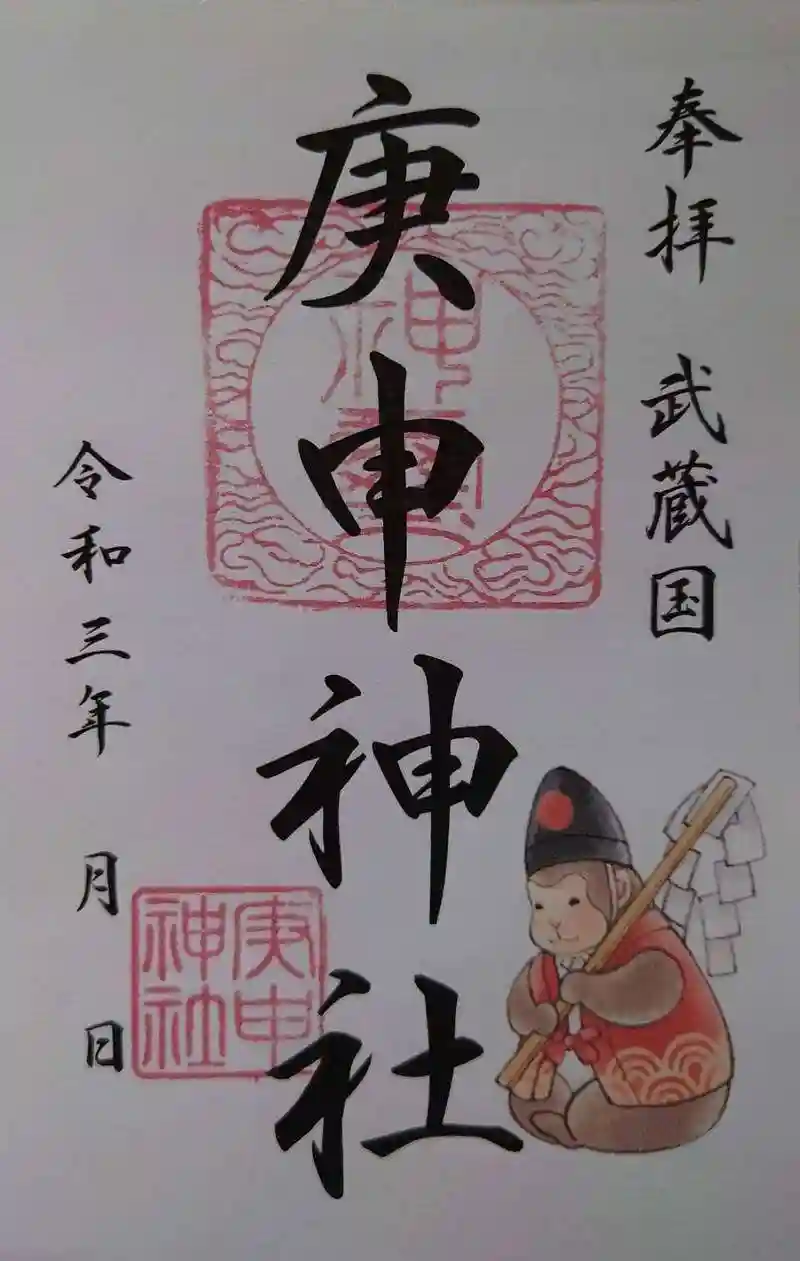 奉拝 武蔵国
庚申神社
令和三年 月 日
神璽
庚申
神社